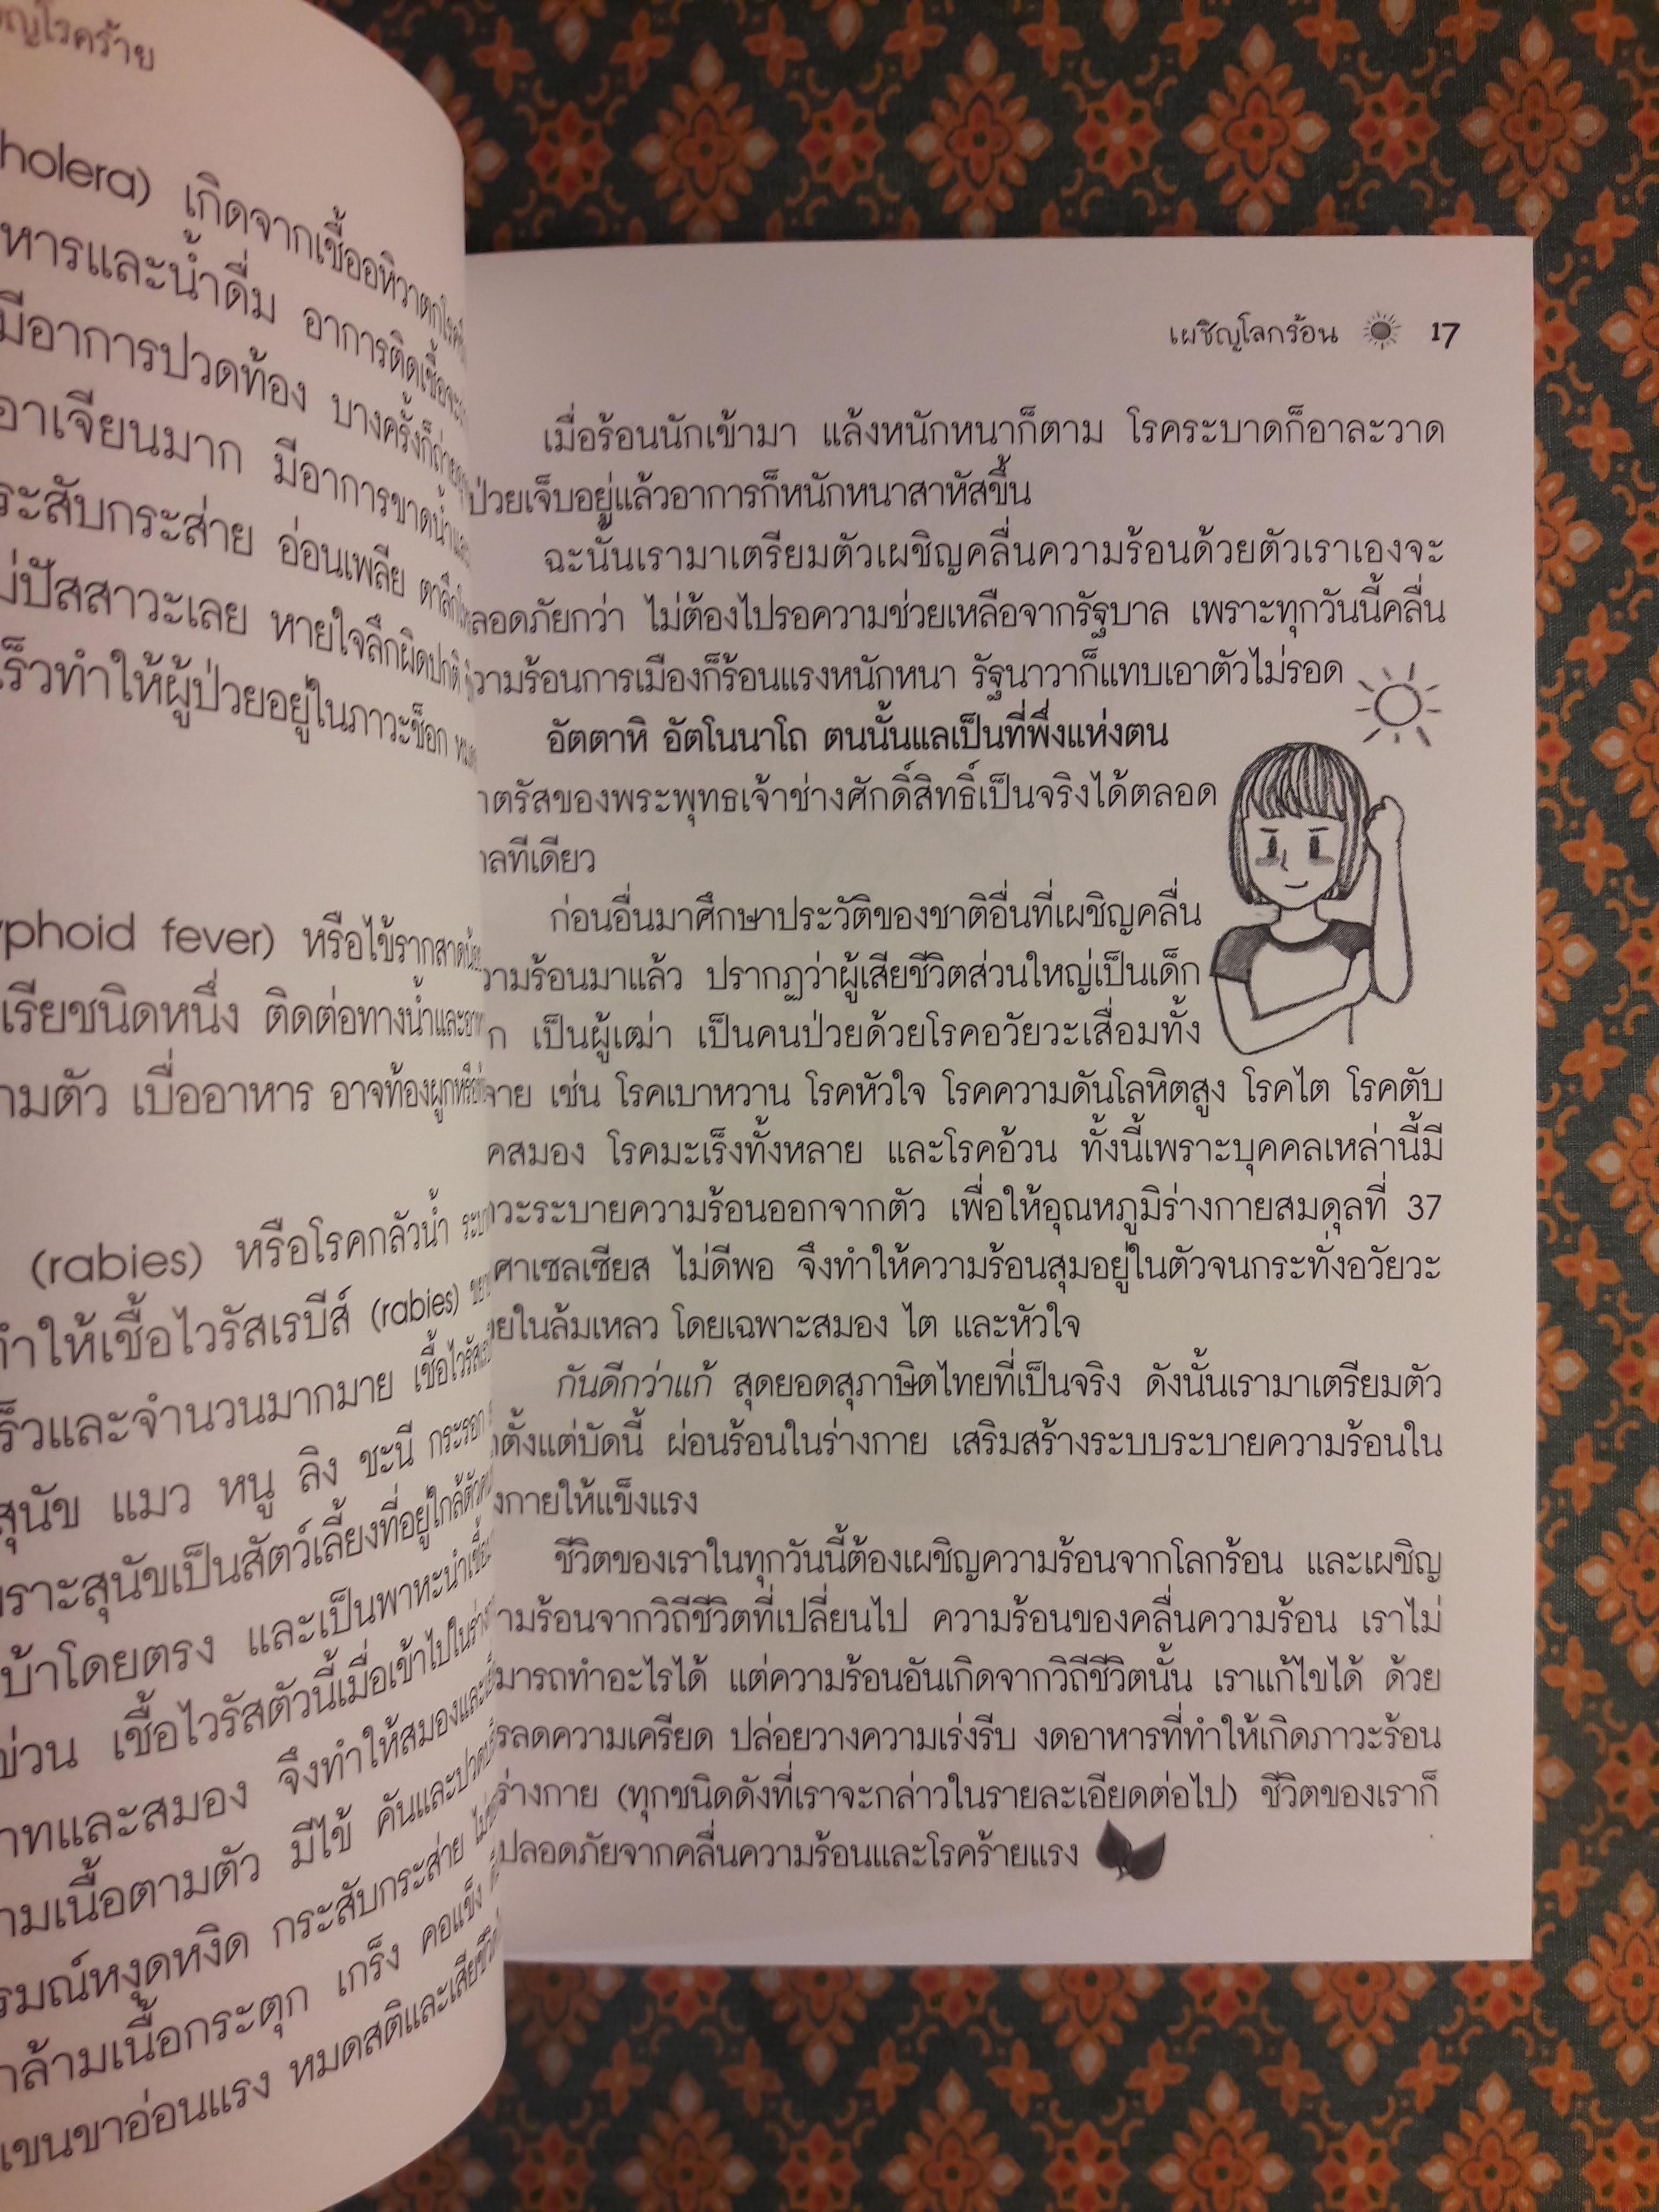 ญโรคร้าย
holera) เกิดจากเชื้ออหิวาตกโรค
หารและน้ำดื่ม อาการติดเชื้อจะ
มีอาการปวดท้อง บางครั้งก็ถ่าย
อาเจียนมาก มีอาการขาดน้ำและ
ระสับกระส่าย อ่อนเพลีย ตาลึก
ม่ปัสสาวะเลย หายใจลึกผิดปกติ
ร็วทำให้ผู้ป่วยอยู่ในภาวะช็อก
yphoid fever) หรือไข้รากสาดน้อย
เรียชนิดหนึ่ง ติดต่อทางน้ำและอา
ามตัว เบื่ออาหาร อาจท้องผูกหรือ
(rabies) หรือโรคกลัวน้ำ ระบา
ทำให้เชื้อไวรัสเรบีส์ (rabies) ขยา
ร็วและจำนวนมากมาย เชื้อไวรัส
สุนัข แมว หนู ลิง ชะนี กระรอก
พราะสุนัขเป็นสัตว์เลี้ยงที่อยู่ใกล้ตัวค
บ้าโดยตรง และเป็นพาหะนำเชื้อ
ข่วน เชื้อไวรัสตัวนี้เมื่อเข้าไปในร่าง
าทและสมอง จึงทำให้สมองและ
ามเนื้อตามตัว มีไข้ คันและปวด
รมณ์หงุดหงิด กระสับกระส่าย
กล้ามเนื้อกระตุก เกร็ง คอแข็ง
แขนขาอ่อนแรง หมดสติและเสียชีวิต
เผชิญโลกร้อน 17
เมื่อร้อนนักเข้ามา แล้งหนักหนาก็ตาม โรคระบาดก็อาละวาด
ป่วยเจ็บอยู่แล้วอาการก็หนักหนาสาหัสขึ้น
ฉะนั้นเรามาเตรียมตัวเผชิญคลื่นความร้อนด้วยตัวเราเองจะ
ลอดภัยกว่า ไม่ต้องไปรอความช่วยเหลือจากรัฐบาล เพราะทุกวันนี้คลื่น
วามร้อนการเมืองก็ร้อนแรงหนักหนา รัฐนาวาก็แทบเอาตัวไม่รอด
อัตตาหิ อัตโนนาโถ ตนนั้นแลเป็นที่พึ่งแห่งตน
าตรัสของพระพุทธเจ้าช่างศักดิ์สิทธิ์เป็นจริงได้ตลอด
าลทีเดียว
ก่อนอื่นมาศึกษาประวัติของชาติอื่นที่เผชิญคลื่น
วามร้อนมาแล้ว ปรากฏว่าผู้เสียชีวิตส่วนใหญ่เป็นเด็ก
ก เป็นผู้เฒ่า เป็นคนป่วยด้วยโรคอวัยวะเสื่อมทั้ง
ลาย เช่น โรคเบาหวาน โรคหัวใจ โรคความดันโลหิตสูง โรคไต โรคตับ
คสมอง โรคมะเร็งทั้งหลาย และโรคอ้วน ทั้งนี้เพราะบุคคลเหล่านี้มี
าวะระบายความร้อนออกจากตัว เพื่อให้อุณหภูมิร่างกายสมดุลที่ 37
ศาเซลเซียส ไม่ดีพอ จึงทำให้ความร้อนสุมอยู่ในตัวจนกระทั่งอวัยวะ
ายในล้มเหลว โดยเฉพาะสมอง ไต และหัวใจ
กันดีกว่าแก้ สุดยอดสุภาษิตไทยที่เป็นจริง ดังนั้นเรามาเตรียมตัว
ตั้งแต่บัดนี้ ผ่อนร้อนในร่างกาย เสริมสร้างระบบระบายความร้อนใน
งกายให้แข็งแรง
ชีวิตของเราในทุกวันนี้ต้องเผชิญความร้อนจากโลกร้อน และเผชิญ
ามร้อนจากวิถีชีวิตที่เปลี่ยนไป ความร้อนของคลื่นความร้อน เราไม่
มารถทำอะไรได้ แต่ความร้อนอันเกิดจากวิถีชีวิตนั้น เราแก้ไขได้ ด้วย
รลดความเครียด ปล่อยวางความเร่งรีบ งดอาหารที่ทำให้เกิดภาวะร้อน
ร่างกาย (ทุกชนิดดังที่เราจะกล่าวในรายละเอียดต่อไป) ชีวิตของเราก็
ปลอดภัยจากคลื่นความร้อนและโรคร้ายแรง